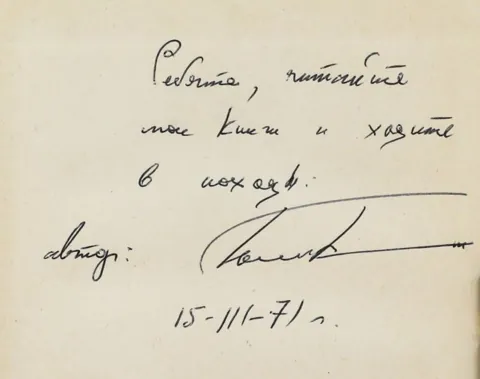 Ребята, читайте
мои книги и ходите
в походы.
автор:
15-III-71 г.